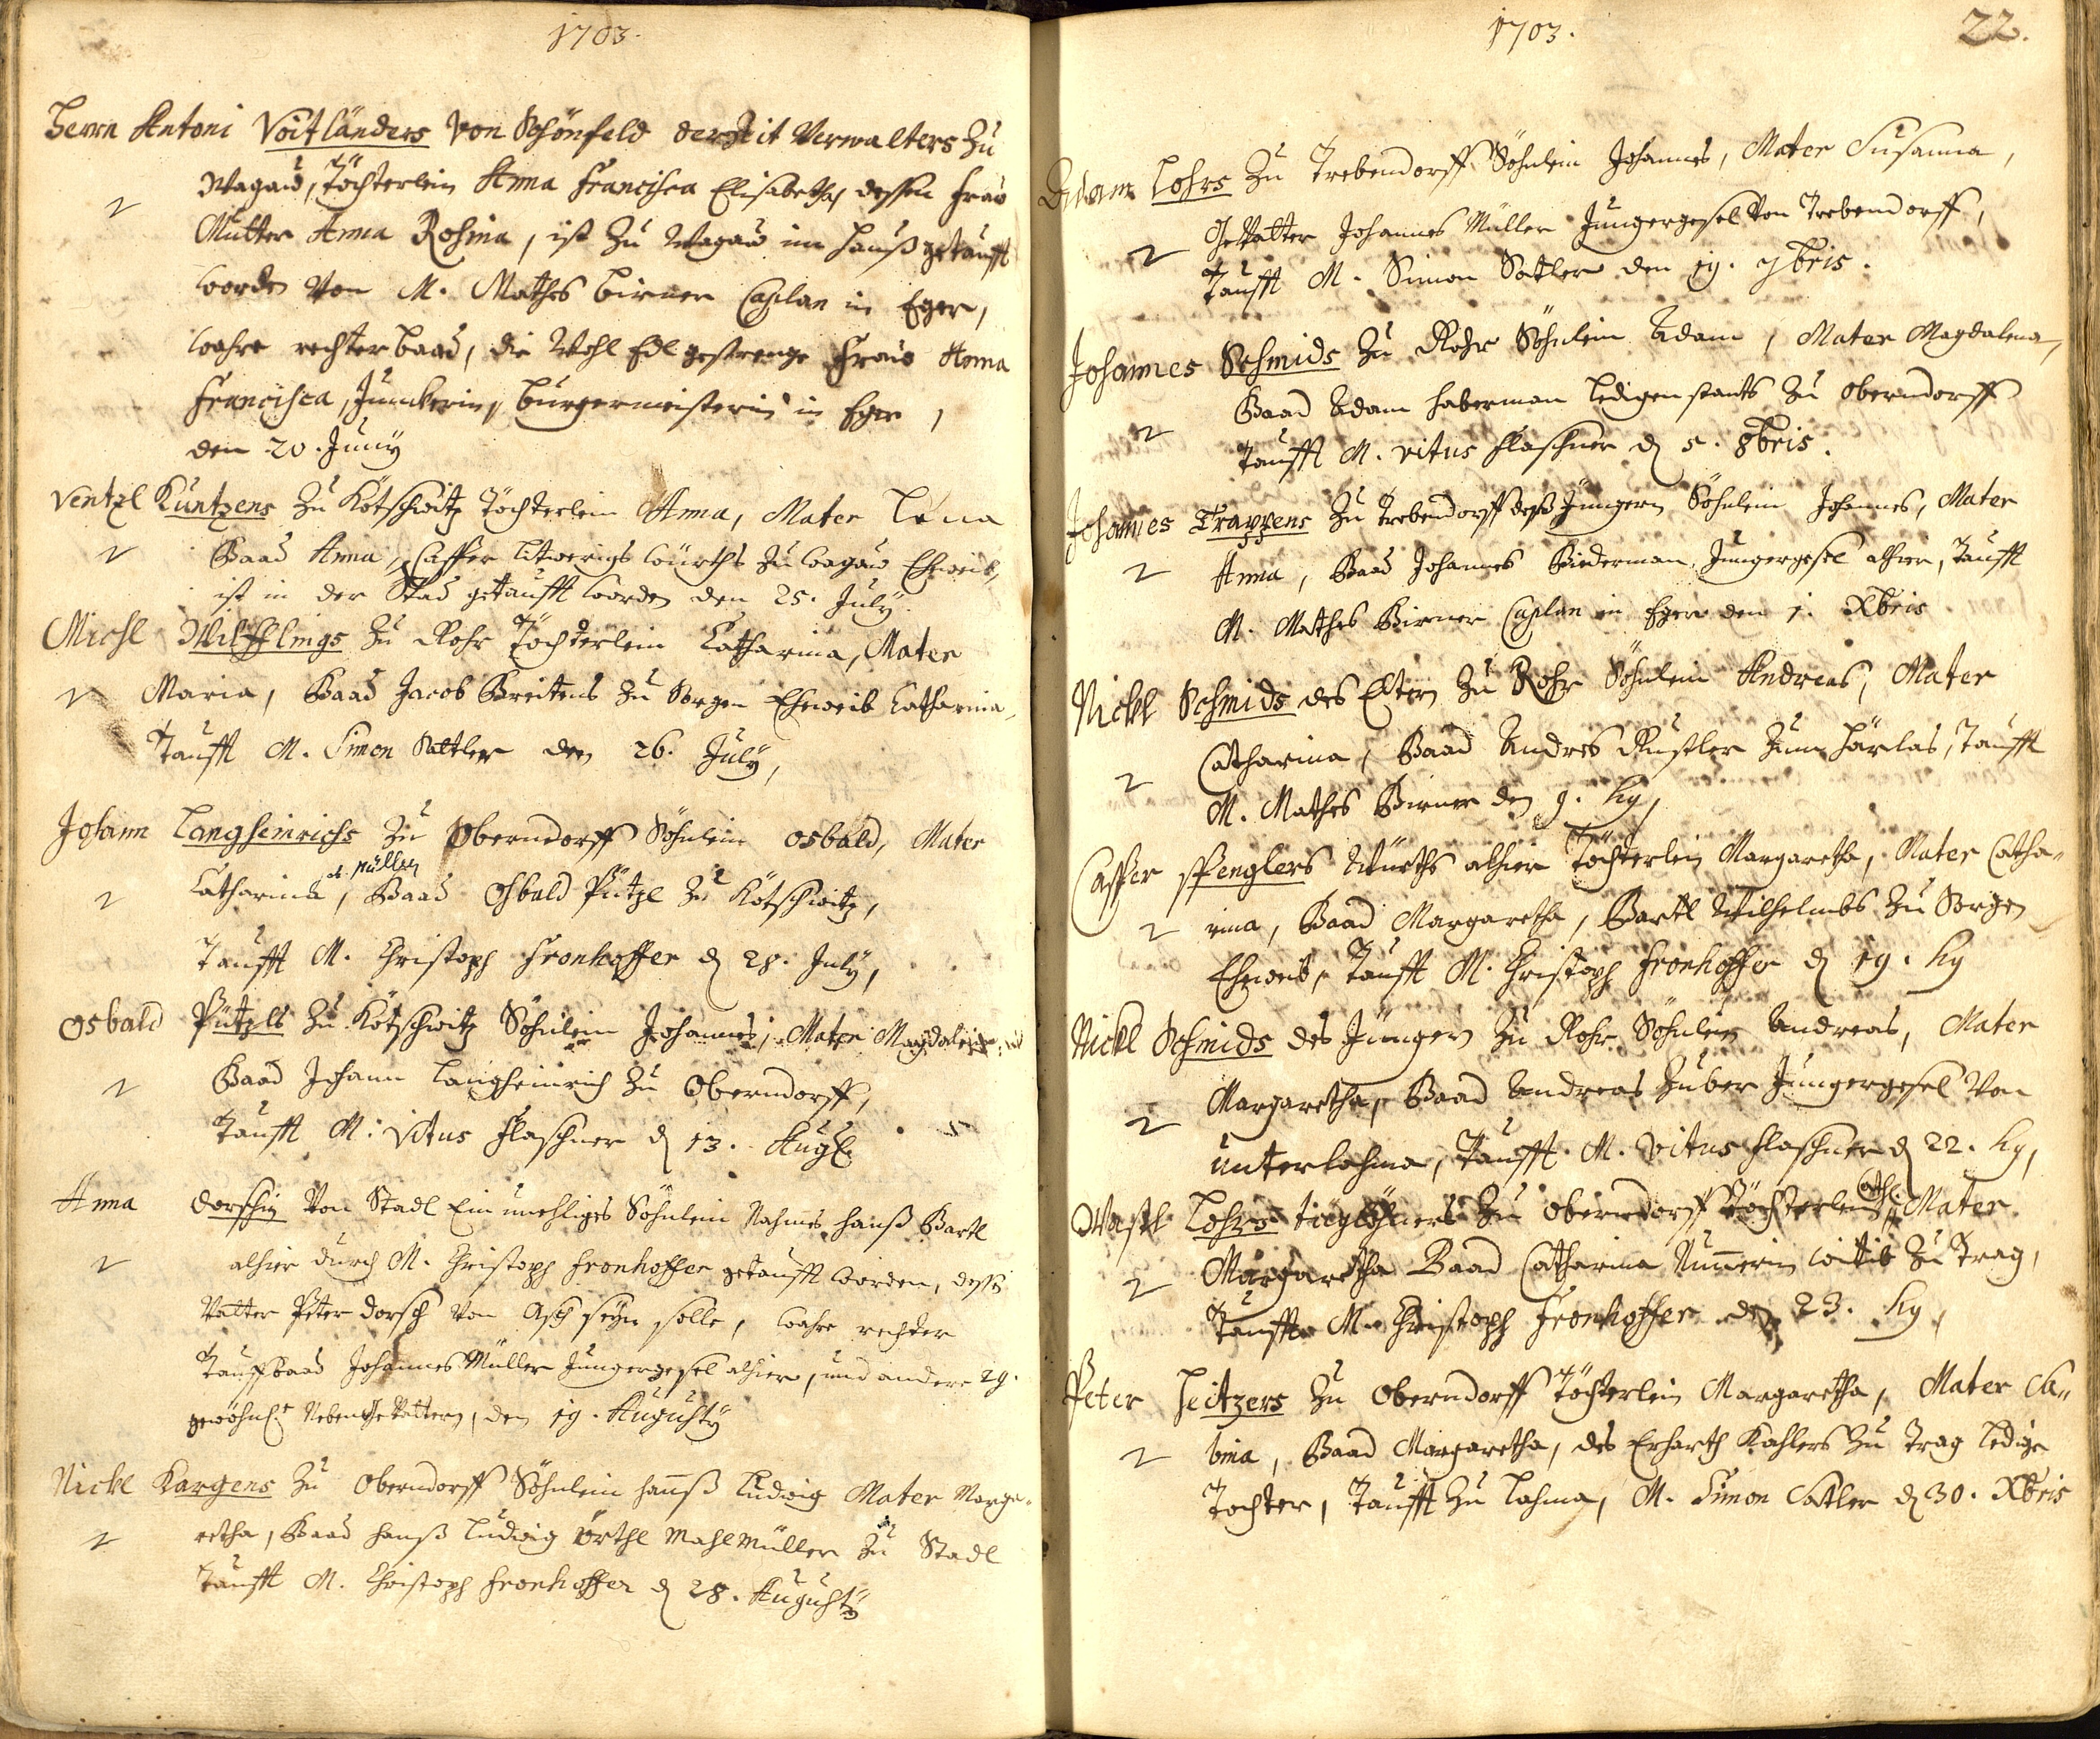 1703.
Herrn Antoni Voitländers von Schönfeld der Zeit Verwalters Zu
Wagaw, Töchterlein Anna Francisca Elisabetha, dessen Frau
Mutter Anna Rosina, ist Zu Wagaw im Hauß getaufft
worden von M. Mathes Birner Caplan in Eger,
wahre rechter baad, die Wohl Edl gestrenge Frau Anna
Francisca, Junckerin, burgermeisterin in Eger,
den 20. Juny
Ventzl Kuntzens Zu Kötschwitz Töchterlein Anna, Mater Lena
Baad Anna, Casper würths Zu wagaw Eheweib,
ist in der Stad getaufft worden den 25. July.
Michl Wilfflings Zu Rohr Töchterlein Catharina, Mater
Maria, Baad Jacob Zu Sorgen Eheweib Catharina,
Taufft M. Simon Sattler den 26. July,
Johann Langheinrichs Zu Oberndorff Söhnlein osbald, Mater
d. Müllers
Catharina, Baad Osbald Pützl Zu Kötschwitz,
Taufft M. Christoph Fronhoffer d 28. July,
Osbald Pützls Zu Kötschwitz Söhnlein Johannes, Mater Magdalena
Baad Johann Langheinrich Zu Oberndorff,
Taufft M. Vitus Flaschner d 13. Aug.
Anna Dorschin Von Stadl Ein unehliges Söhnlein Nahmes Hanß Bartl
alhier durch M. Christoph Fronhoffer getaufft worden, dessen
Vatter Peter Dorsch von Asch seyn solle, wahre rechter
Tauffbaad Johannes Müller Jungergesel alhier, und andere 2
gewöhnl. NebenGevattern, den 19. Augusty
Nickl Kargens Zu Oberndorff Söhnlein Hanß Ludwig Mater Marga-
retha, Baad Hanß Ludwig örthl Mahlmüller Zu Stadl
Taufft M. Christoph Fronhoffer d 28. Augusty
1703.
22.
Adam Lohrs Zu Trebendorff Söhnlein Johannes, Mater Susanna,
Gevatter Johannes Müller Jungergesel von Trebendorff,
Taufft M. Simon Sattler den 19. 7bris.
Johannes Schmids Zu Rohr Söhnlein Adam, Mater Magdalena,
Baad Adam Haberman Ledigenstants Zu Oberndorff
Taufft M. Vitus Flaschner d 5. 8bris.
Johannes Trappens Zu Trebendorff deß Jüngern Söhnlein Johannes, Mater
Anna, Baad Johannes Biederman Jungergesel alhier, Taufft
M. Mathes Birner Caplan in Eger den 1. Xbris
Nickl Schmids des Eltern Zu Rohr Söhnlein Andreas, Mater
Catharina, Baad Andres Rustler Zum Härlas, Taufft
M. Mathes Birner den 9. hy,
Casper Spenglers Würths alhier Töchterlein Margaretha, Mater Catha-
rina, Baad Margaretha, Bartl Wilhelmbs Zu Sorgen
Eheweib, Taufft M. Christoph Fronhoffer d 19. hy
Nickl Schmids des Jüngern Zu Rohr Söhnlein Andreas, Mater
Margaretha, Baad Andreas Zuber Jungergesel Von
unterlohma, Taufft M. Vitus Flaschner d 22. hy,
Cath:
Wastl Lohrs tiglöhners Zu Oberndorff Töchterlein, Mater
Margaretha Baad Catharina wittib Zu Trag,
Taufft M. Christoph Fronhoffer den 23. hy,
Peter Heitzers Zu Oberndorff Töchterlein Margaretha, Mater Sa-
bina, Baad Margaretha, des Erharth Kahlers Zu Trag Ledige
Tochter, Taufft Zu Lohma, M. Simon Sattler d 30. Xbris